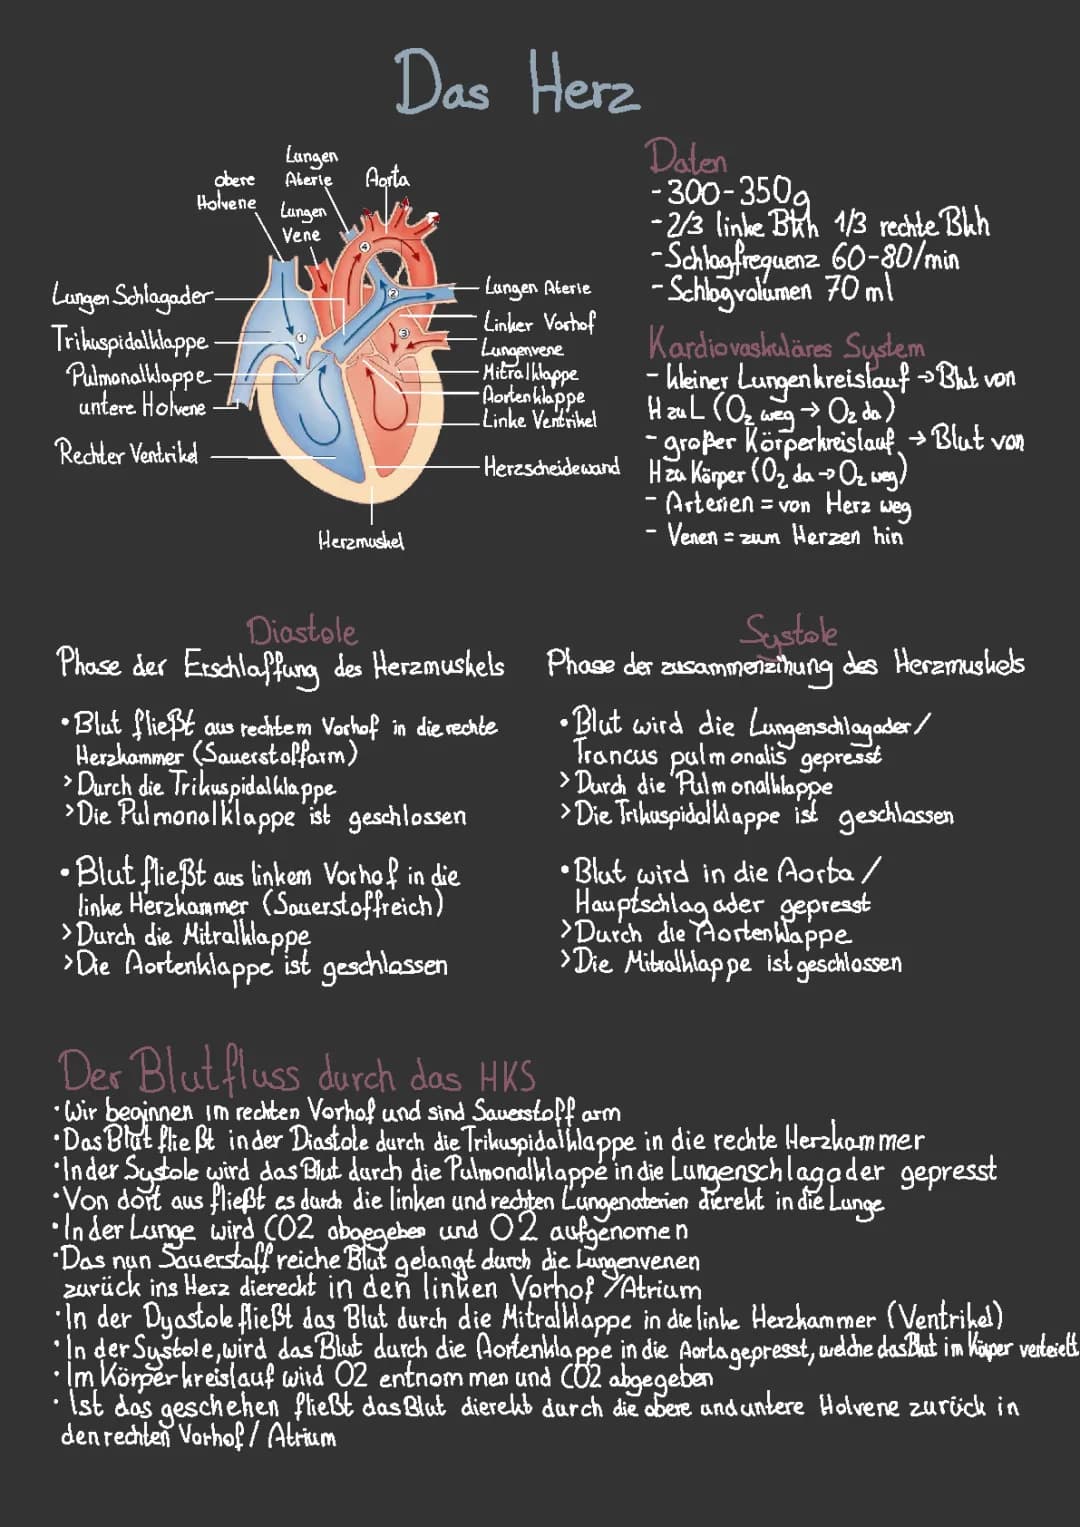 Das Herz
Lungen
Aterie
Aorta
obere
Holvene
Lungen
Vene
Lungen Schlagader
Trikuspidalklappe
Pulmonalklappe
untere Holvene
Rechter Ventrikel
4
2
1
3
Lungen Aterie
Linker Vorhof
Lungenvene
Mitralklappe
Aortenklappe
Linke Ventrikel
Herzscheidewand
Herzmuskel
Daten
- 300-350g
- 2/3 linke Bkh 1/3 rechte Bkh
- Schlagfrequenz 60-80/min
- Schlagvolumen 70 ml
Kardiovaskuläres System
- kleiner Lungenkreislauf → Blut von
H zu L (O2 weg → O2 da)
- großer Körperkreislauf → Blut von
H zu Körper (O2 da → O2 weg)
- Arterien = von Herz weg
- Venen = zum Herzen hin
Diastole
Phase der Erschlaffung des Herzmuskels
• Blut fließt aus rechtem Vorhof in die rechte
Herzkammer (Sauerstoffarm)
> Durch die Trikuspidalklappe
> Die Pulmonalklappe ist geschlossen
• Blut fließt aus linkem Vorhof in die
linke Herzkammer (Sauerstoffreich)
> Durch die Mitralklappe
> Die Aortenklappe ist geschlossen
Systole
Phase der zusammenzihung des Herzmuskels
• Blut wird die Lungenschlagader/
Trancus pulmonalis gepresst
> Durch die Pulmonalklappe
> Die Trikuspidalklappe ist geschlossen
• Blut wird in die Aorta/
Hauptschlagader gepresst
> Durch die Aortenklappe
> Die Mitralklappe ist geschlossen
Der Blutfluss durch das HKS
• Wir beginnen im rechten Vorhof und sind Sauerstoff arm
• Das Blut fließt in der Diastole durch die Trikuspidalklappe in die rechte Herzkammer
• In der Systole wird das Blut durch die Pulmonalklappe in die Lungenschlagader gepresst
• Von dort aus fließt es durch die linken und rechten Lungenaterien dierekt in die Lunge
• In der Lunge wird CO2 abgegeben und O2 aufgenomen
• Das nun Sauerstoff reiche Blut gelangt durch die Lungenvenen
zurück ins Herz diereckt in den linken Vorhof / Atrium
• In der Dyastole fließt das Blut durch die Mitralklappe in die linke Herzkammer (Ventrikel)
• In der Systole, wird das Blut durch die Aortenklappe in die Aorta gepresst, welche das Blut im Körper verteielt
• Im Körperkreislauf wird O2 entnommen und CO2 abgegeben
• Ist das geschehen fließt das Blut dierekt durch die obere und untere Holvene zurück in
den rechten Vorhof / Atrium